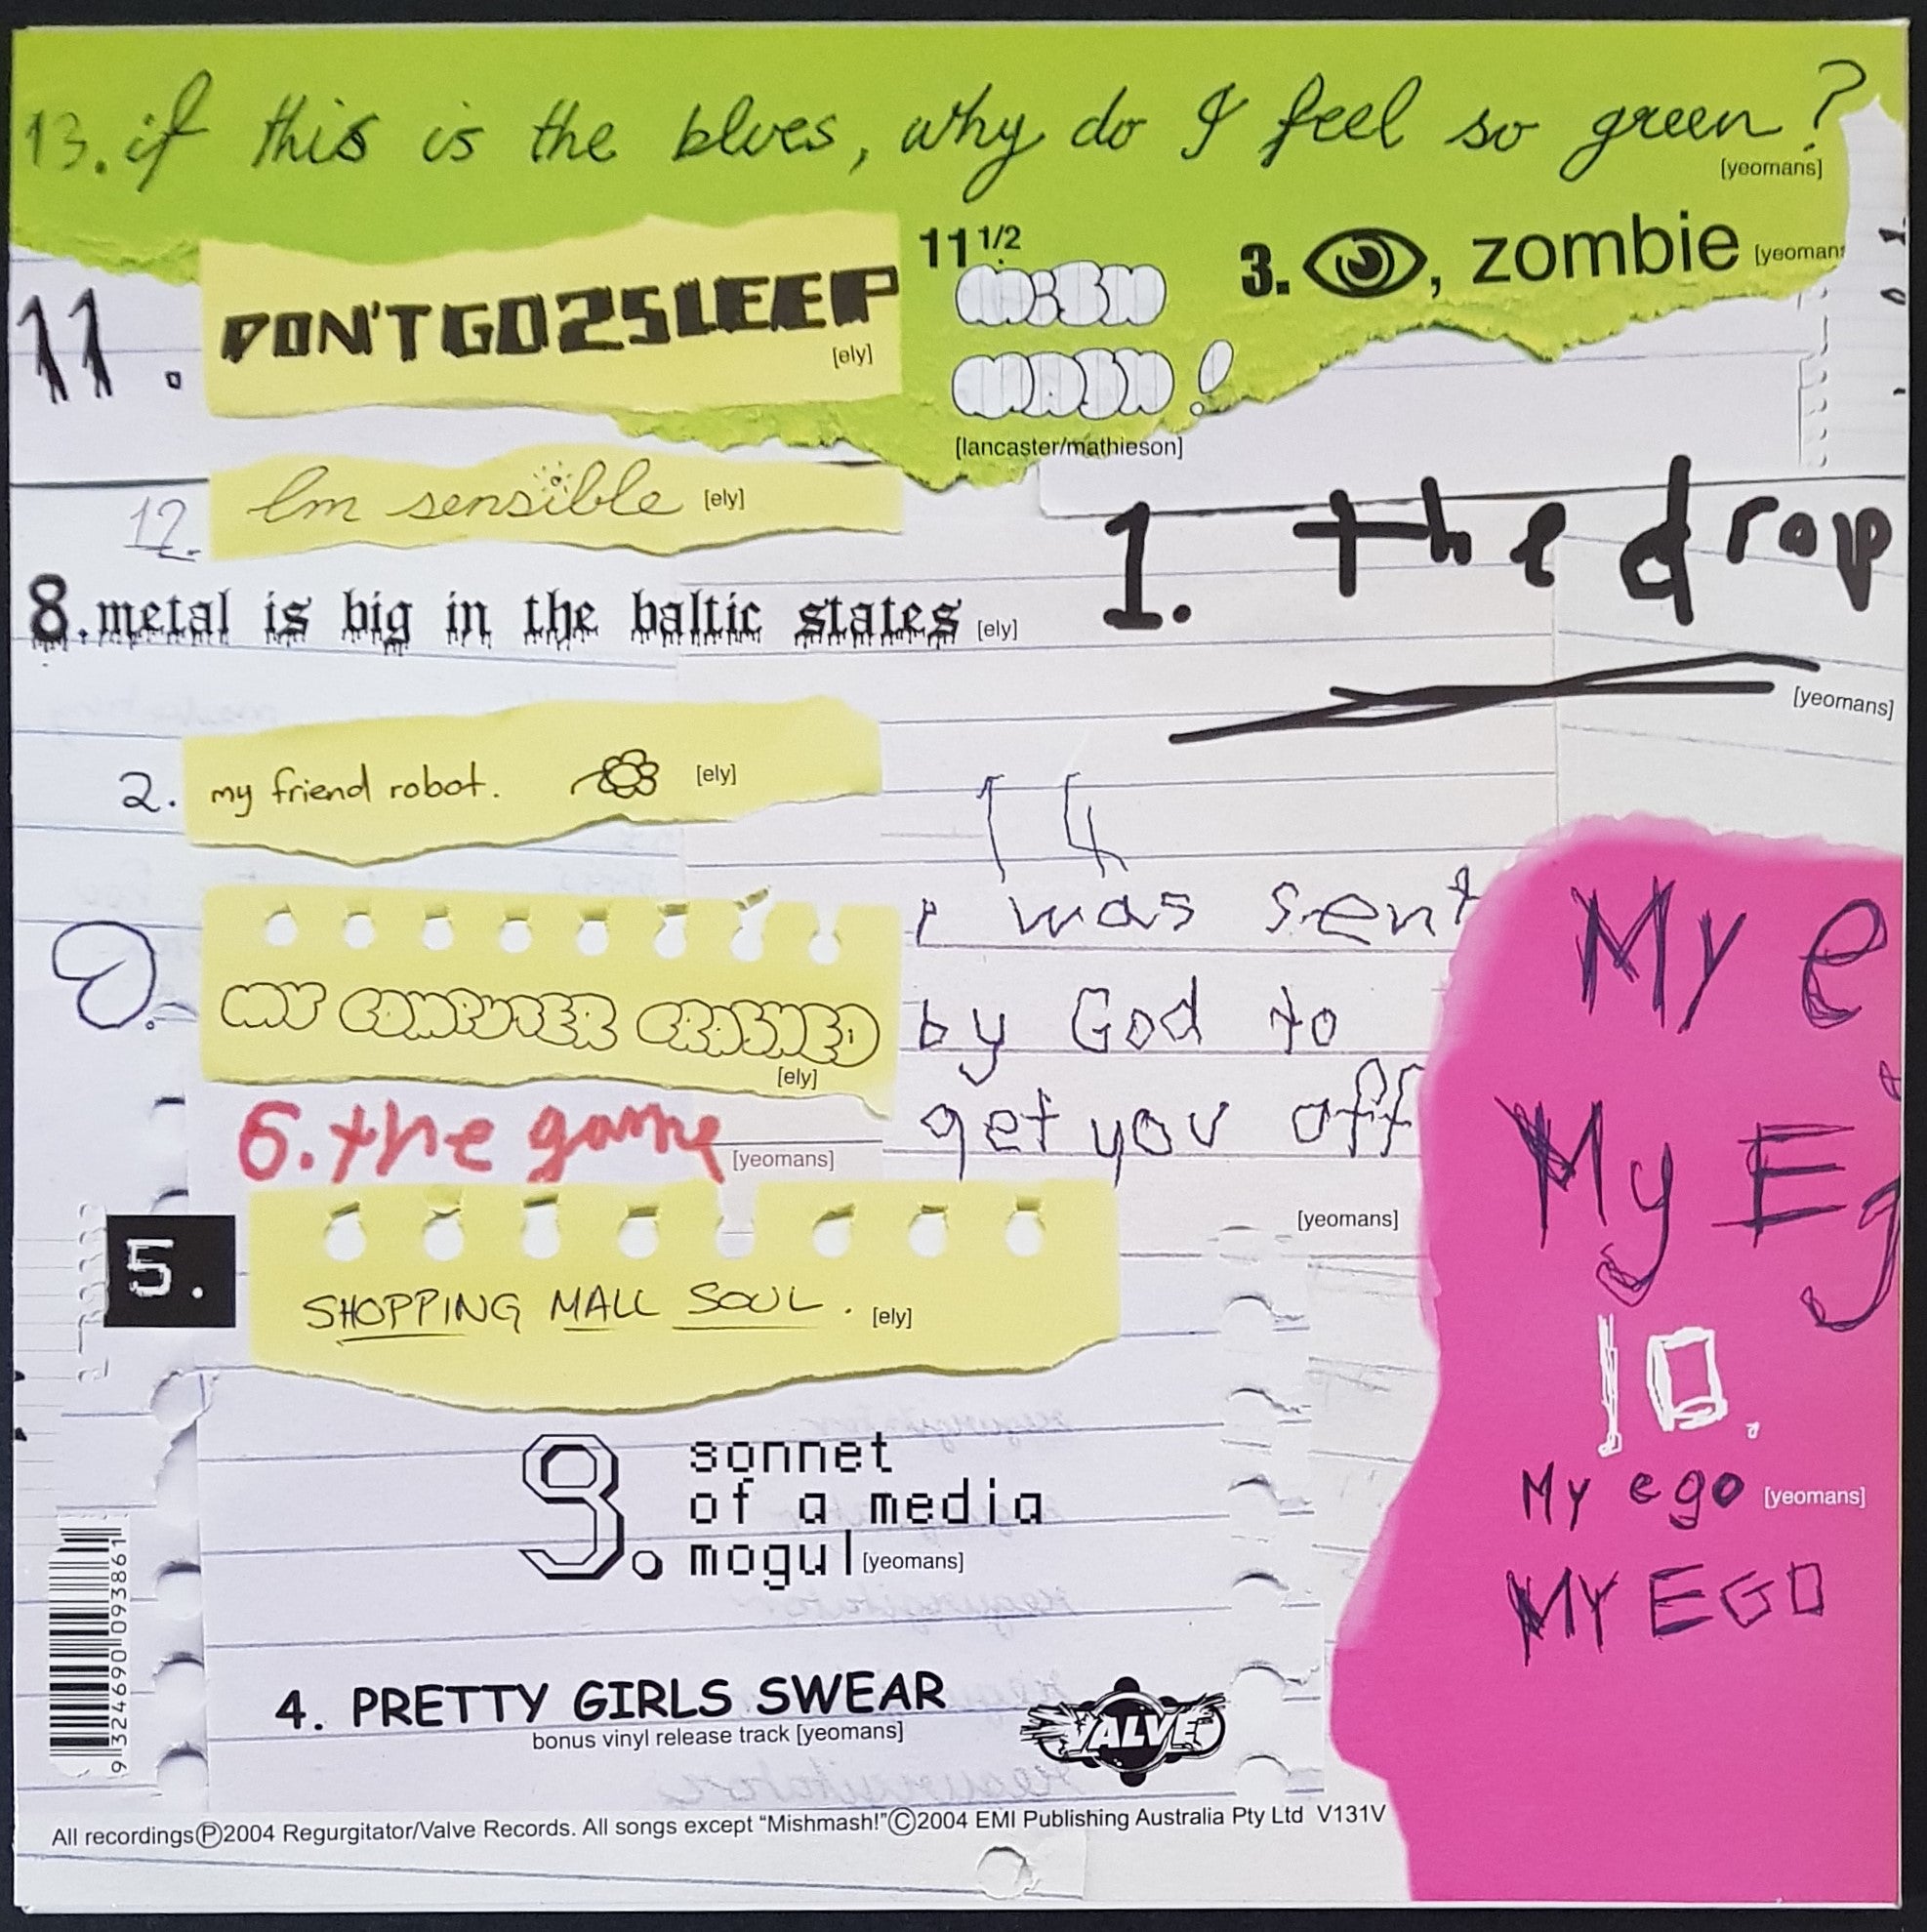 13. if this is the blues, why do I feel so green?
[yeomans]
11.
DON'T GO 2 SLEEP
[ely]
11 1/2
MiSH
MASH!
[lancaster/mathieson]
3. , zombie [yeomans
12. Im sensible [ely]
1. the drop
[yeomans]
8. metal is big in the baltic states [ely]
2. my friend robot. [ely]
14
I was sent
by God to
get you off
[yeomans]
MY COMPUTER CRASHED
[ely]
6. the game [yeomans]
5.
SHOPPING MALL SOUL. [ely]
My e
My Eg
10.
My ego [yeomans]
MY EGO
9. sonnet
of a media
mogul [yeomans]
4. PRETTY GIRLS SWEAR
bonus vinyl release track [yeomans]
VALVE
9 324690 093861
All recordings℗2004 Regurgitator/Valve Records. All songs except “Mishmash!”©2004 EMI Publishing Australia Pty Ltd V131V